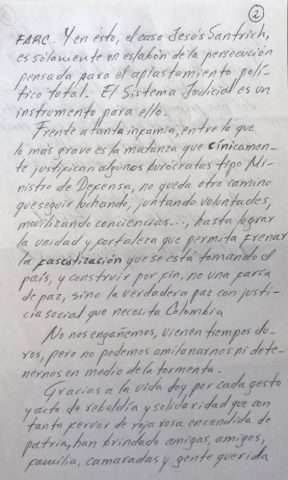 2
FARC. Y en ésto, el caso Jesús Santrich,
es solamente un eslabón de la persecución
pensada para el aplastamiento polí-
tico total. El Sistema Judicial es un
instrumento para ello.
Frente a tanta infamia, entre lo que
lo más grave es la matanza que cínicamen-
te justifican algunos burócratas tipo Mi-
nistro de Defensa, no queda otro camino
que seguir luchando, juntando voluntades,
movilizando conciencias..., hasta lograr
la unidad y fortaleza que permita frenar
la fascistización que se está tomando el
país, y construir por fin, no una farsa
de paz, sino la verdadera paz con justi-
cia social que necesita Colombia
No nos engañemos, vienen tiempos du-
ros, pero no podemos amilanarnos ni dete-
nernos en medio de la tormenta.
Gracias a la vida doy por cada gesto
y acto de rebeldía y solidaridad que con
tanto fervor de rojo rosa encendida de
patria, han brindado amigas, amigos,
familia, camaradas y gente querida